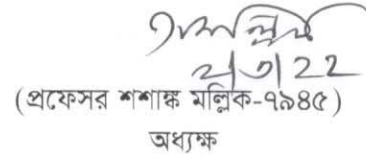 (প্রফেসর শশাঙ্ক মল্লিক-৭৯৪৫)
অধ্যক্ষ